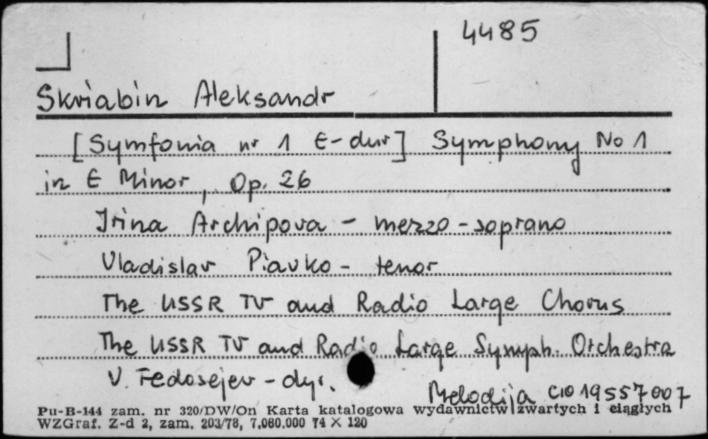 4485
Skriabin Aleksandr
[Symfonia nr 1 E-dur] Symphony No 1
in E Minor, Op. 26
Irina Archipova - mezzo-soprano
Vladislav Piavko - tenor
The USSR TV and Radio Large Chorus
The USSR TV and Radio Large Symph. Orchestra
V. Fedosejev - dyr.
Melodija C10 19557007
Pu-B-144 zam. nr 320/DW/On Karta katalogowa wydawnictw zwartych i ciągłych
WZGraf. Z-d 2, zam. 203/78, 7.080.000 74 × 120